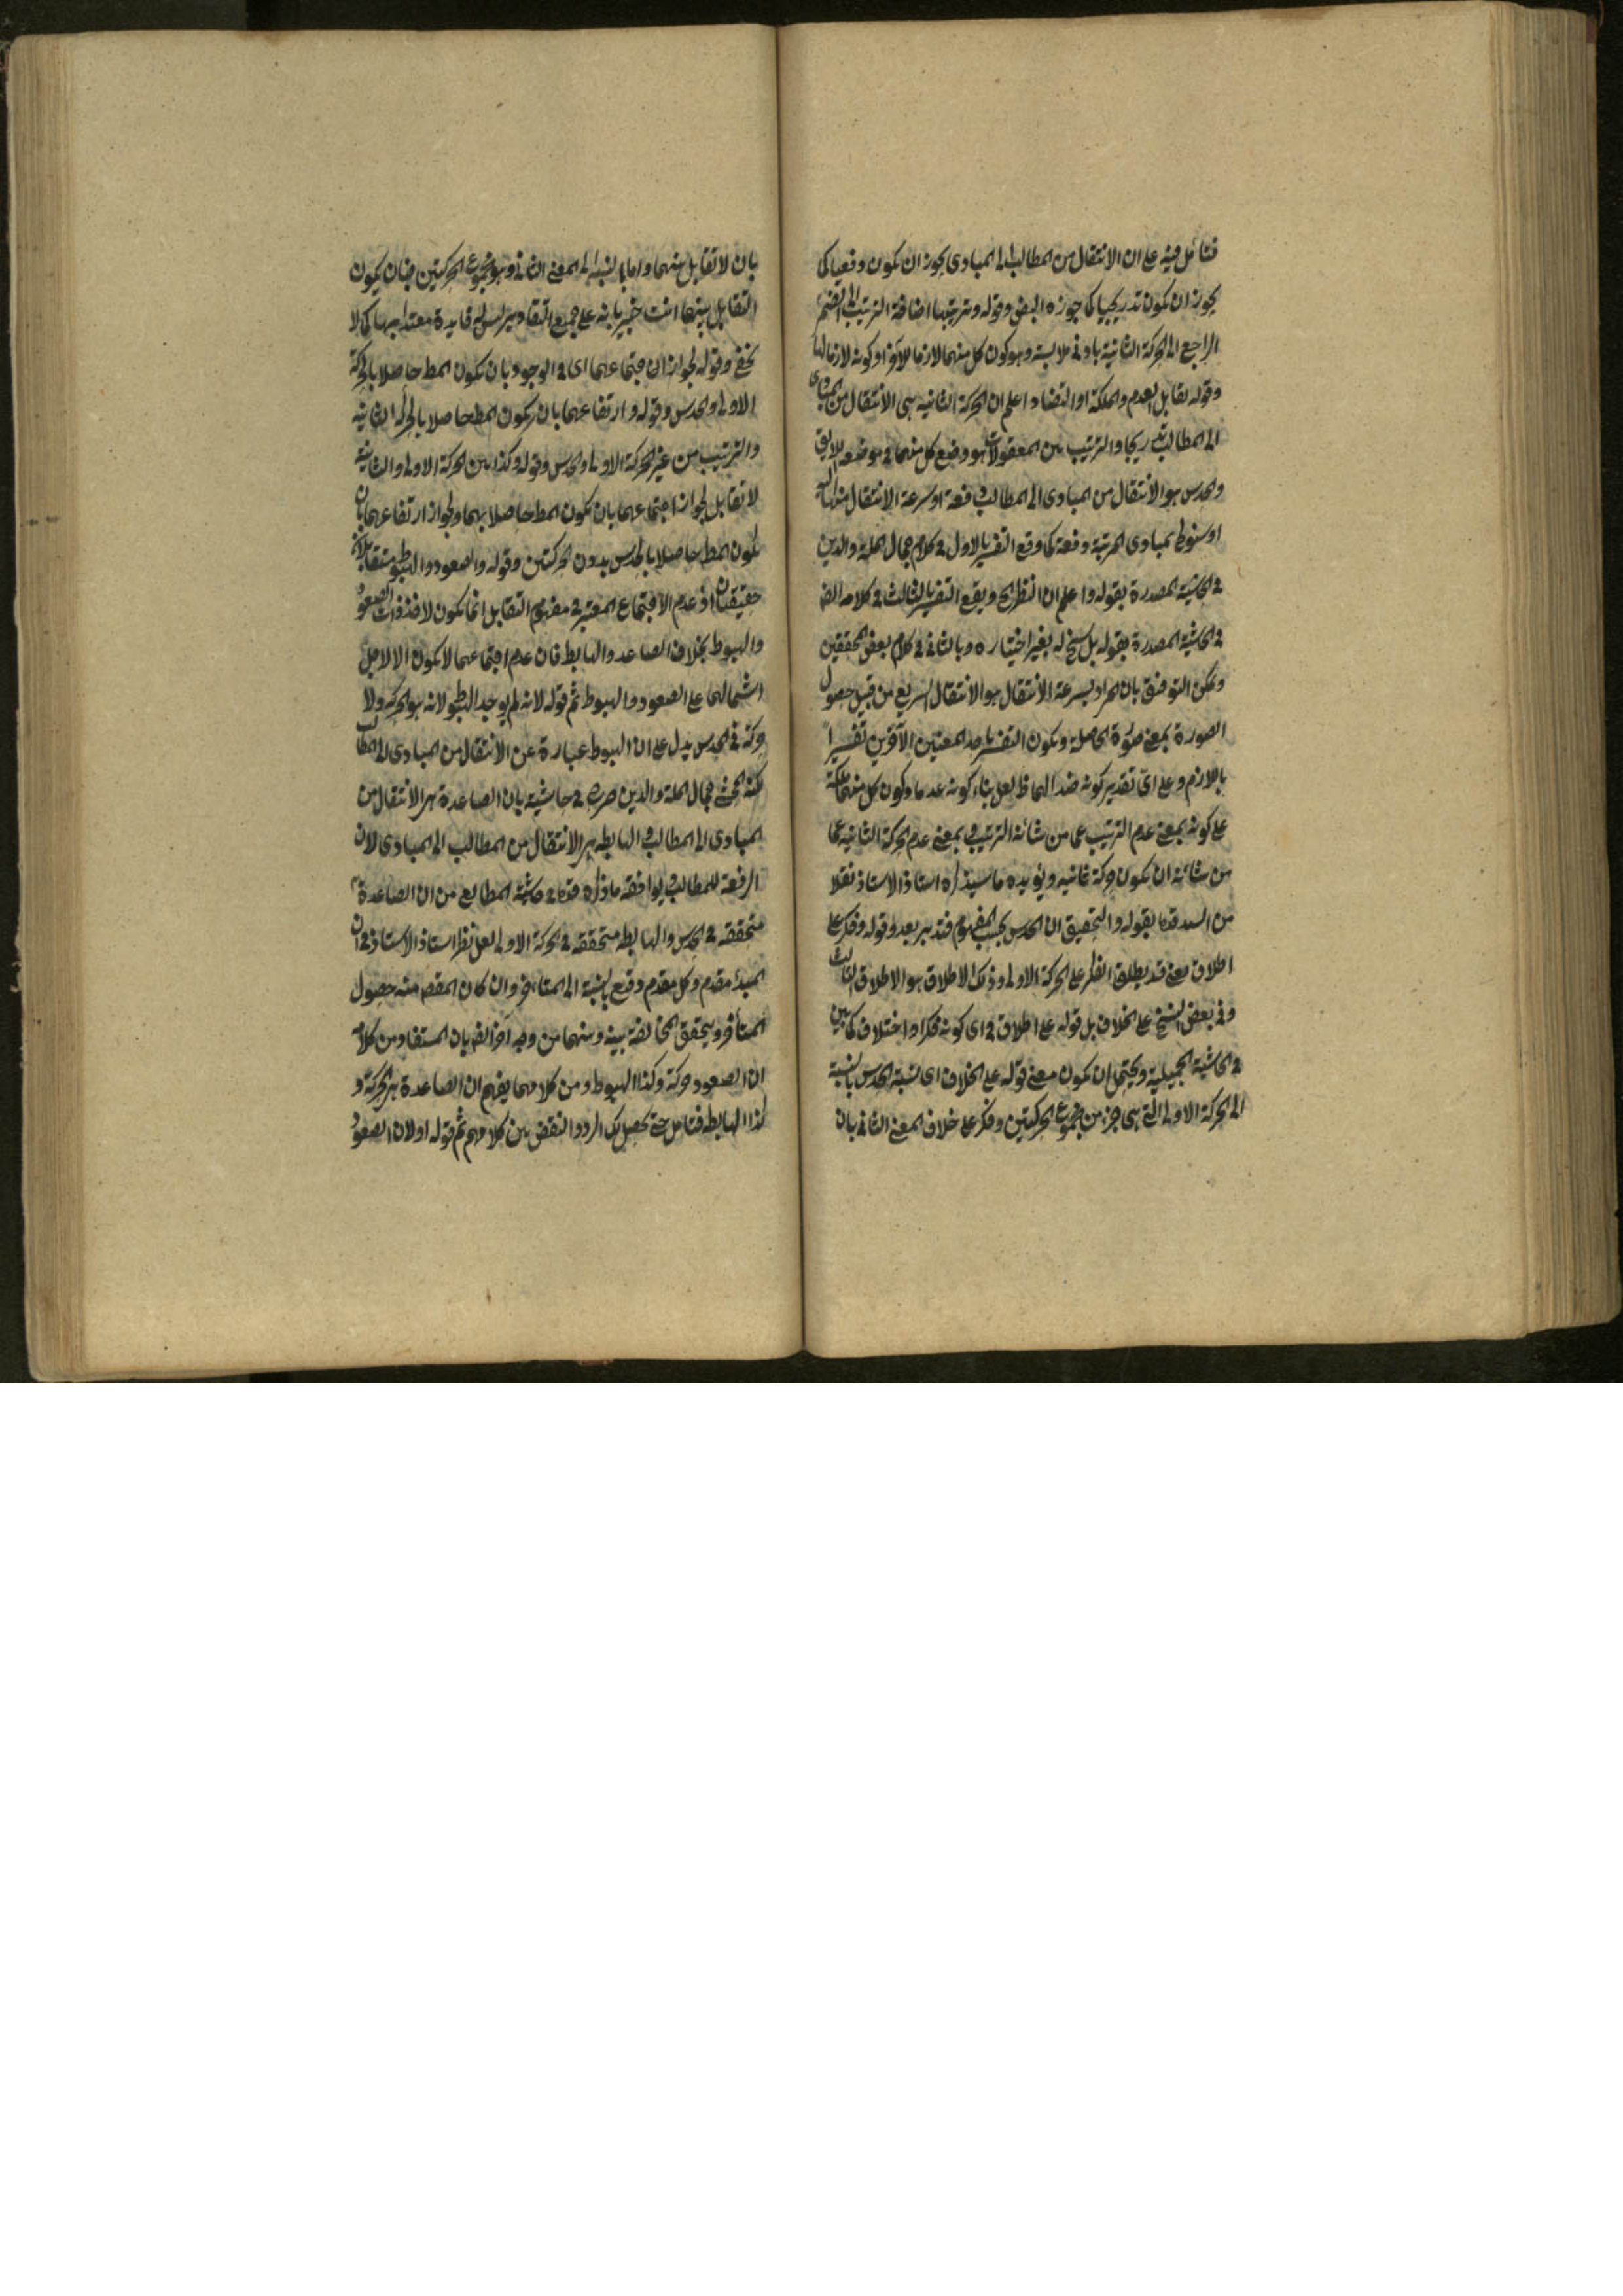 فتأمل فيه على ان الانتقال من المطالب الى المبادى يجوز ان يكون دفعيا كما
يجوز ان يكون تدريجيا كما جوزه البعض وقوله وترتيبها اضافة الترتيب الى الضمير
الراجع الى الحركة الثانية بادنى ملابسة وهو كون كل منهما لازما للآخر او كونه لازما لها
وقوله تقابل العدم والملكة او التضاد اعلم ان الحركة الثانيه هى الانتقال من المبادى
الى المطالب تدريجا والترتيب بين المعقولات هو وضع كل منهما فى موضعه اللايق
والحدس هو الانتقال من المبادى الى المطالب دفعة او سرعة الانتقال منها
او سنوح المبادى المرتبة دفعة كما وقع التفسير الاول فى كلام جمال الملة والدين
فى الحاشية المصدرة بقوله واعلم ان النظر الخ ويقع التفسير الثالث فى كلامه
فى الحاشية المصدرة بقوله بل سنح له بغير اختياره وبالثانى فى كلام بعض المحققين
ويمكن التوفيق بان المراد بسرعة الانتقال هو الانتقال السريع من قبيل حصول
الصورة بمعنى الصورة الحاصلة ويكون التفسير باحد المعنيين الآخرين تفسيرا
باللازم وعلى اىّ تقدير كونه ضد الهما لعل بناء كونه عدما وكون كل منهما ملكة
على كونه بمعنى عدم الترتيب عما من شانه الترتيب وبمعنى عدم الحركة الثانيه عما
من شانه ان يكون حركة ثانيه ويؤيده ما سيذكره استاذ الاستاذ نقلا
من السيد قده بقوله والتحقيق ان الحدس بحسب المفهوم فتدبر بعد وقوله وفكر على
اطلاق يعنى قد يطلق الفكر على الحركة الاولى وذلك الاطلاق هو الاطلاق الثالث
وفى بعض النسخ على الخلاف بل قوله على اطلاق فى اى كونه فكرا واختلاف كما بين
فى الحاشية الجميلية ويحتمل ان يكون معنى قوله على الخلاف اى نسبة الحدس بالنسبة
الى الحركة الاولى التى هى جزء من مجموع الحركتين وفكر على خلاف المعنى الثانى بان
بان لا تقابل بينهما واما بالنسبة الى المعنى الثانى وهو مجموع الحركتين فبان يكون
التقابل بينهما انت خبير بانه على جميع التقادير ليس له فايدة معتدا بها كما لا
يخفى وقوله لجواز اجتماعهما اى فى الوجود بان يكون المط حاصلا بالحركة
الاولى والحدس وقوله وارتفاعهما بان يكون المط حاصلا بالحركة الثانيه
والترتيب من غير الحركة الاولى والحدس وقوله وكذا بين الحركة الاولى والثانية
لا تقابل لجواز اجتماعهما بان يكون المط حاصلا بهما ولجواز ارتفاعهما بان
يكون المط حاصلا بالحدس بدون الحركتين وقوله والصعود والهبوط متقابلان
حقيقتان اذ عدم الاجتماع المعتبر فى مفهوم التقابل انما يكون لا فذذات الصعود
والهبوط بخلاف الصاعد والهابط فان عدم اجتماعهما لا يكون الا لاجل
اشتمالهما على الصعود والهبوط ثم قوله لانه لم يوجد الهبوط لانه هو الحركة ولا
حركة فى الحدس يدل على ان الهبوط عبارة عن الانتقال من المبادى الى المطالب
لكنه المحشى جمال الملة والدين صرح فى حاشيته بان الصاعدة هى الانتقال من
المبادى الى المطالب والهابطه هى الانتقال من المطالب الى المبادى لان
الرفعة للمطالب ويوافقه ما ذكره قده فى حاشية المطالع من ان الصاعدة
متحققه فى الحدس والهابطه متحققه فى الحركة الاولى لعل نظر استاذ الاستاذ فى ان
المبدأ مقدم وكل مقدم رفيع بالنسبة الى المتأخر وان كان المقصد منه حصول
المتأخر ويتحقق المخالفة بينه وبينهما من وجه آخر ايضا بان المستفاد من كلامه
ان الصعود حركة وكذا الهبوط ومن كلامهما يفهم ان الصاعدة هى الحركة و
كذا الهابطه فتامل حتى يحصل لك الرد والنقض بين كلامهم ثم قوله اولان الصعود